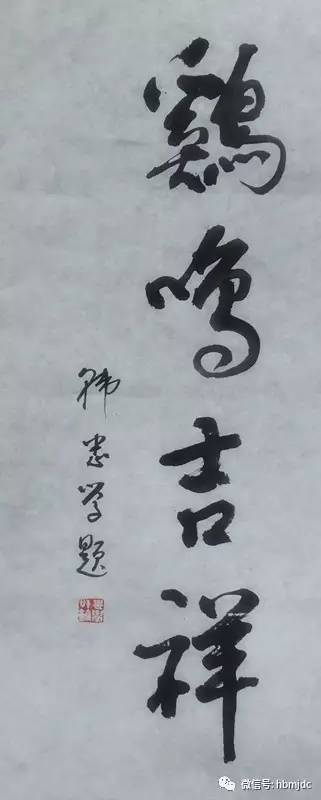 鷄鳴吉祥
韩学題
微信号: hbmjdc